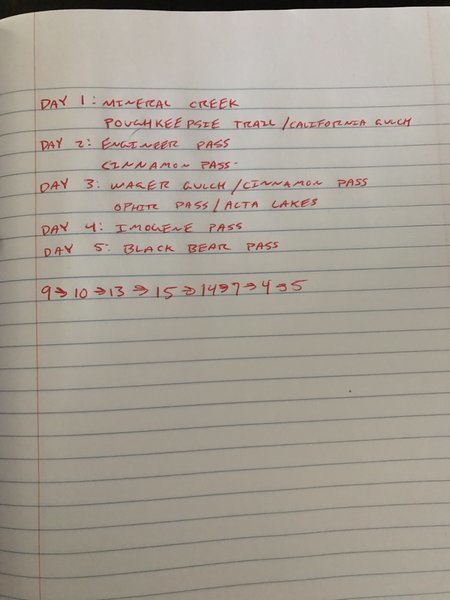 DAY 1: MINERAL CREEK
POUGHKEEPSIE TRAIL/CALIFORNIA GULCH
DAY 2: ENGINEER PASS
CINNAMON PASS.
DAY 3: WAGER GULCH/CINNAMON PASS
OPHIR PASS/ALTA LAKES
DAY 4: IMOGENE PASS
DAY 5: BLACK BEAR PASS
9→10→13→15→14→7→4→5